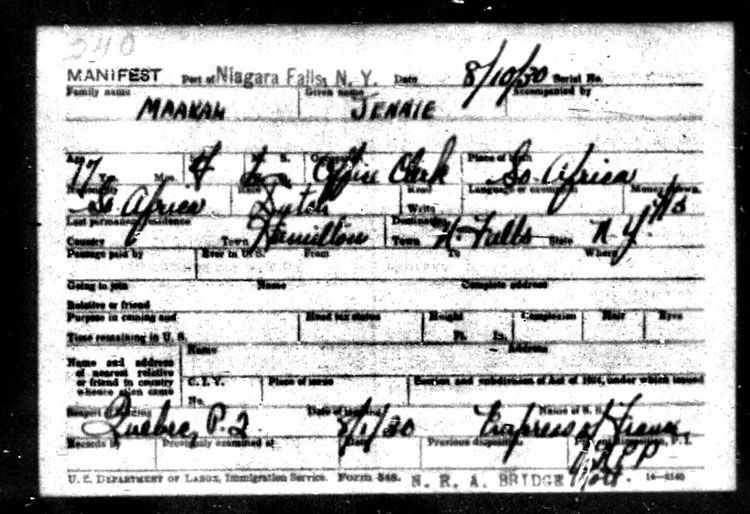 340
MANIFEST Port of Niagara Falls, N. Y. Date 8/10/30 Serial No.
Family name Given name Accompanied by
MAAKAL JENNIE
Age Yrs. Mos. S. Place of Birth
17 f Office Clerk So. Africa
Nationality Race Read Language or exemption Money shown
So. Africa Dutch Write
Last permanent residence Destination
Country Town Hamilton Town N. Falls State N. Y.
Passage paid by Ever in U.S. From To Where
Going to join Name Complete address
Relative or friend
Purpose in coming and Head tax status Height Complexion Hair Eyes
Time remaining in U. S. Ft. In.
Name and address Name Address
of nearest relative
or friend in country C. I. V. Place of issue Section and subdivision of Act of 1924, under which issued
whence alien came No.
Seaport of landing Date of landing Name of S. S.
Quebec, P.Q. 8/1/30 Empress of France
Records by Previously examined at Date Previous disposition
U. S. DEPARTMENT OF LABOR, Immigration Service. Form 548. N. R. A. BRIDGE